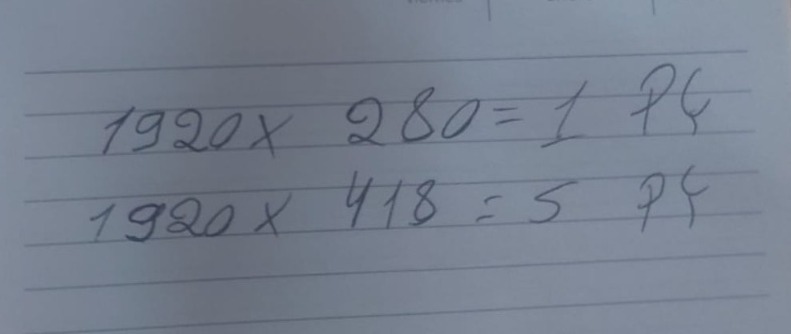 1920x 280=1 PÇ
1920x 418=5 PÇ